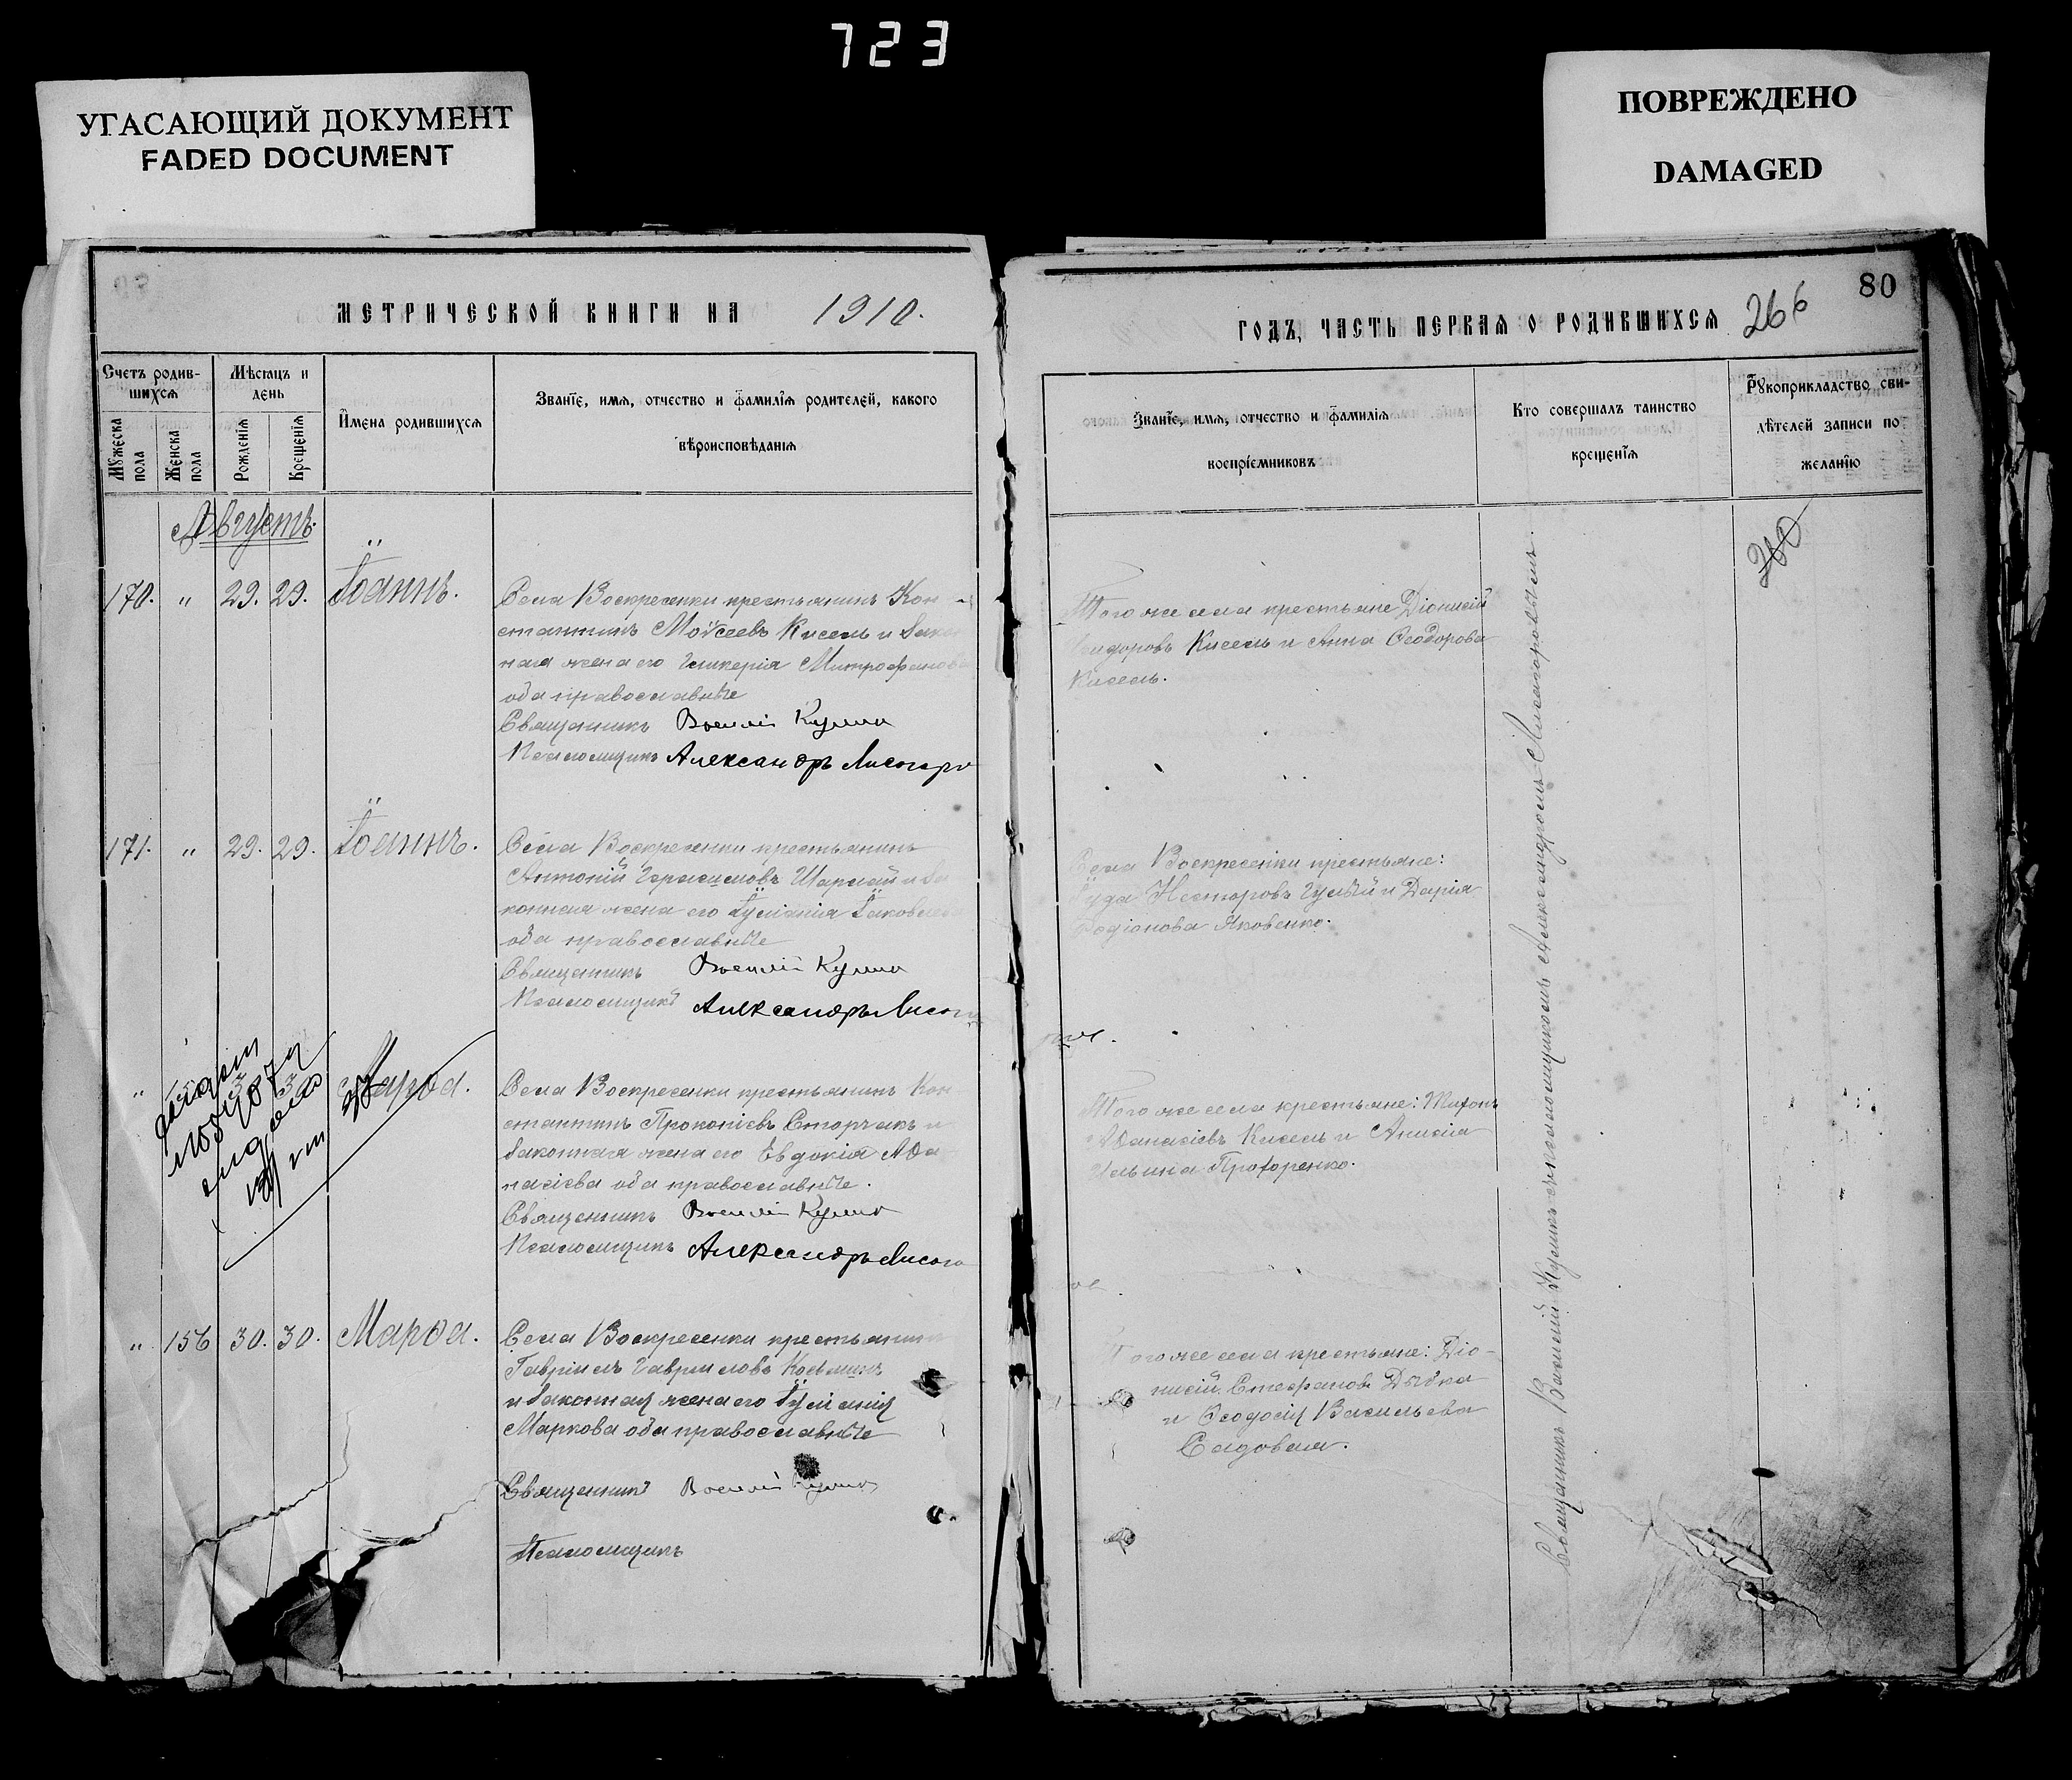 723
УГАСАЮЩИЙ ДОКУМЕНТ
FADED DOCUMENT
ПОВРЕЖДЕНО
DAMAGED
МЕТРИЧЕСКОЙ КНИГИ НА 1910.
Счетъ родив-
шихся
Мѣсяцъ и
день
Мужеска
пола
Женска
пола
Рожденія
Крещенія
Имена родившихся
Званіе, имя, отчество и фамилія родителей, какого
вѣроисповѣданія
Августъ.
170. " 29. 29. Іоаннъ.
Села Воскресенки крестьянинъ Кон-
стантинъ Моѵсеевъ Кисель и закон
ная жена его Гликерія Митрофанова
оба православные
Священникъ Василій
Псаломщикъ Александръ Лисогор
171. " 29. 29. Іоаннъ.
Села Воскресенки крестьянинъ
Антоній Герасимовъ Шармай и за
конная жена его Іуліанія Іаковлева
оба православные
Священникъ Василій
Псаломщикъ Александръ Лисог
" Марѳа.
Села Воскресенки крестьянинъ Кон
стантинъ Прокопіевъ Сторчакъ и
законная жена его Евдокія Аѳа
насіева оба православные.
Священникъ Василій
Псаломщикъ Александръ Лисого
" 156 30. 30. Марѳа.
Села Воскресенки крестьянинъ
Гавріилъ Гавриловъ Косьминъ
и законная жена его Іуліанія
Маркова оба православные
Священникъ Василій
Псаломщикъ
80
ГОДЪ, ЧАСТЬ ПЕРВАЯ О РОДИВШИХСЯ 266
Званіе, имя, отчество и фамилія
воспріемниковъ
Кто совершалъ таинство
крещенія
Рукоприкладство сви-
дѣтелей записи по
желанію
Того же села крестьяне Діонисій
Исидоровъ Кисель и Анна Ѳеодорова
Кисель.
Села Воскресенки крестьяне:
Іуда Несторовъ Гулый и Дарія
Родіонова Яковенко.
Того же села крестьяне: Тихонъ
Аѳанасіевъ Кисель и Анисія
Ильина Прохоренко.
Того же села крестьяне: Діо-
нисій Стефановъ Дыбка
и Ѳеодосія Васильева
Садовая.
Священникъ Василій съ псаломщикомъ Александромъ Лисогорскимъ.